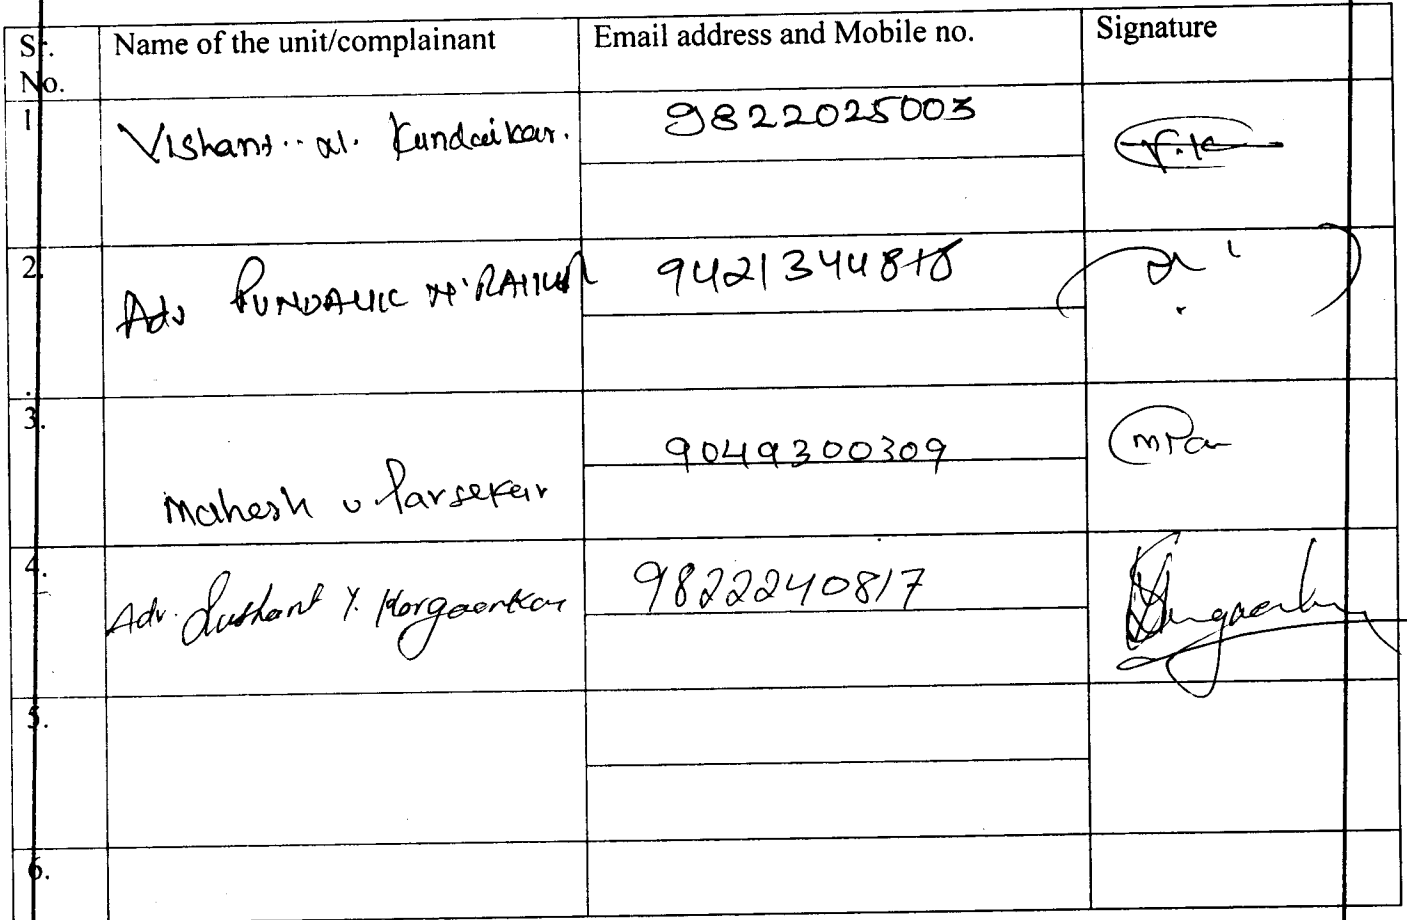 Sr. No.
Name of the unit/complainant
Email address and Mobile no.
Signature
1
Vishant
Kundaikar.
9822025003
2.
Adv PUNDALIK
3.
Mahesh v. Parsekar
9049300309
4.
Adv. Sushant Y. Korgaonkar
9822240817
5.
6.